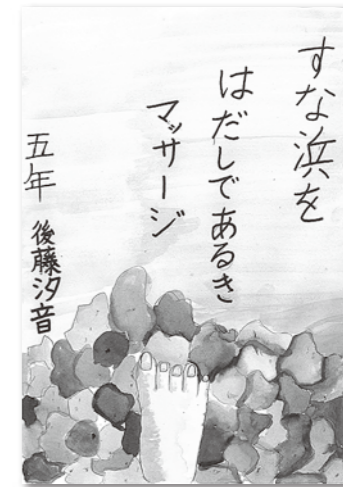 すな浜を
はだしであるき
マッサージ
五年 後藤汐音